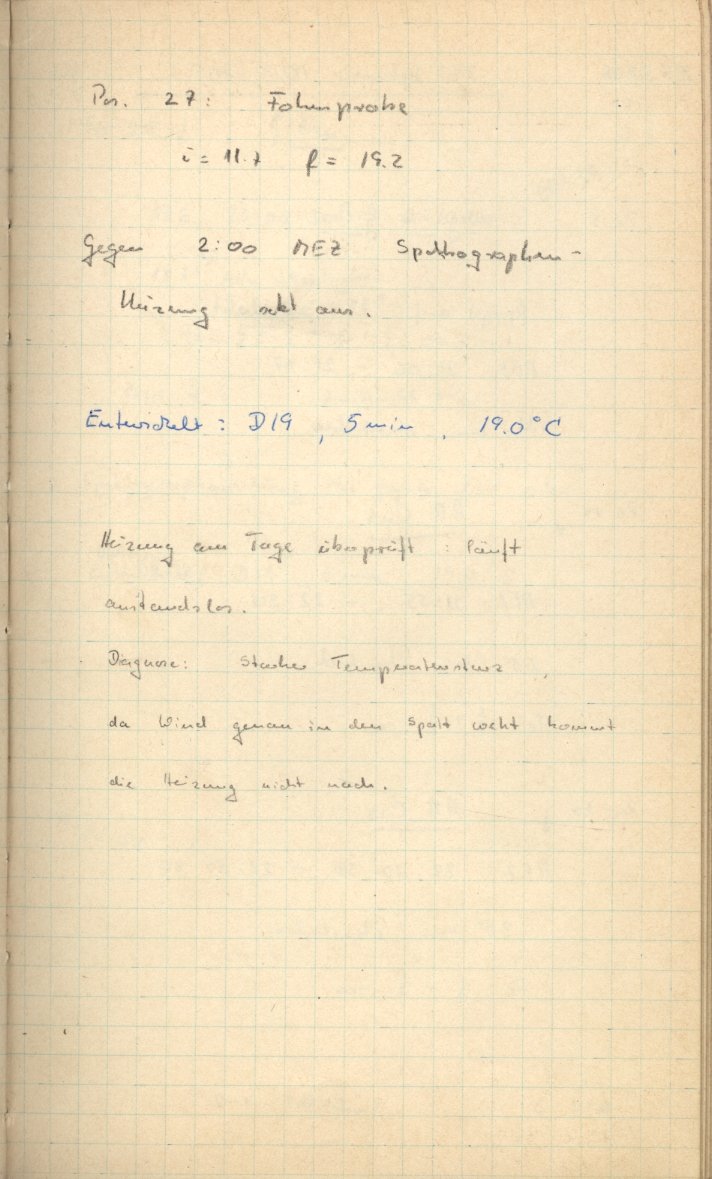 Pos. 27: Fokusprobe
i = 11.7 f = 19.2
Gegen 2:00 MEZ Spektrographen-
Heizung setzt aus.
Entwickelt: D19, 5 min, 19.0°C
Heizung am Tage überprüft: läuft
anstandslos.
Diagnose: Starker Temperatursturz,
da Wind genau in den Spalt weht kommt
die Heizung nicht nach.